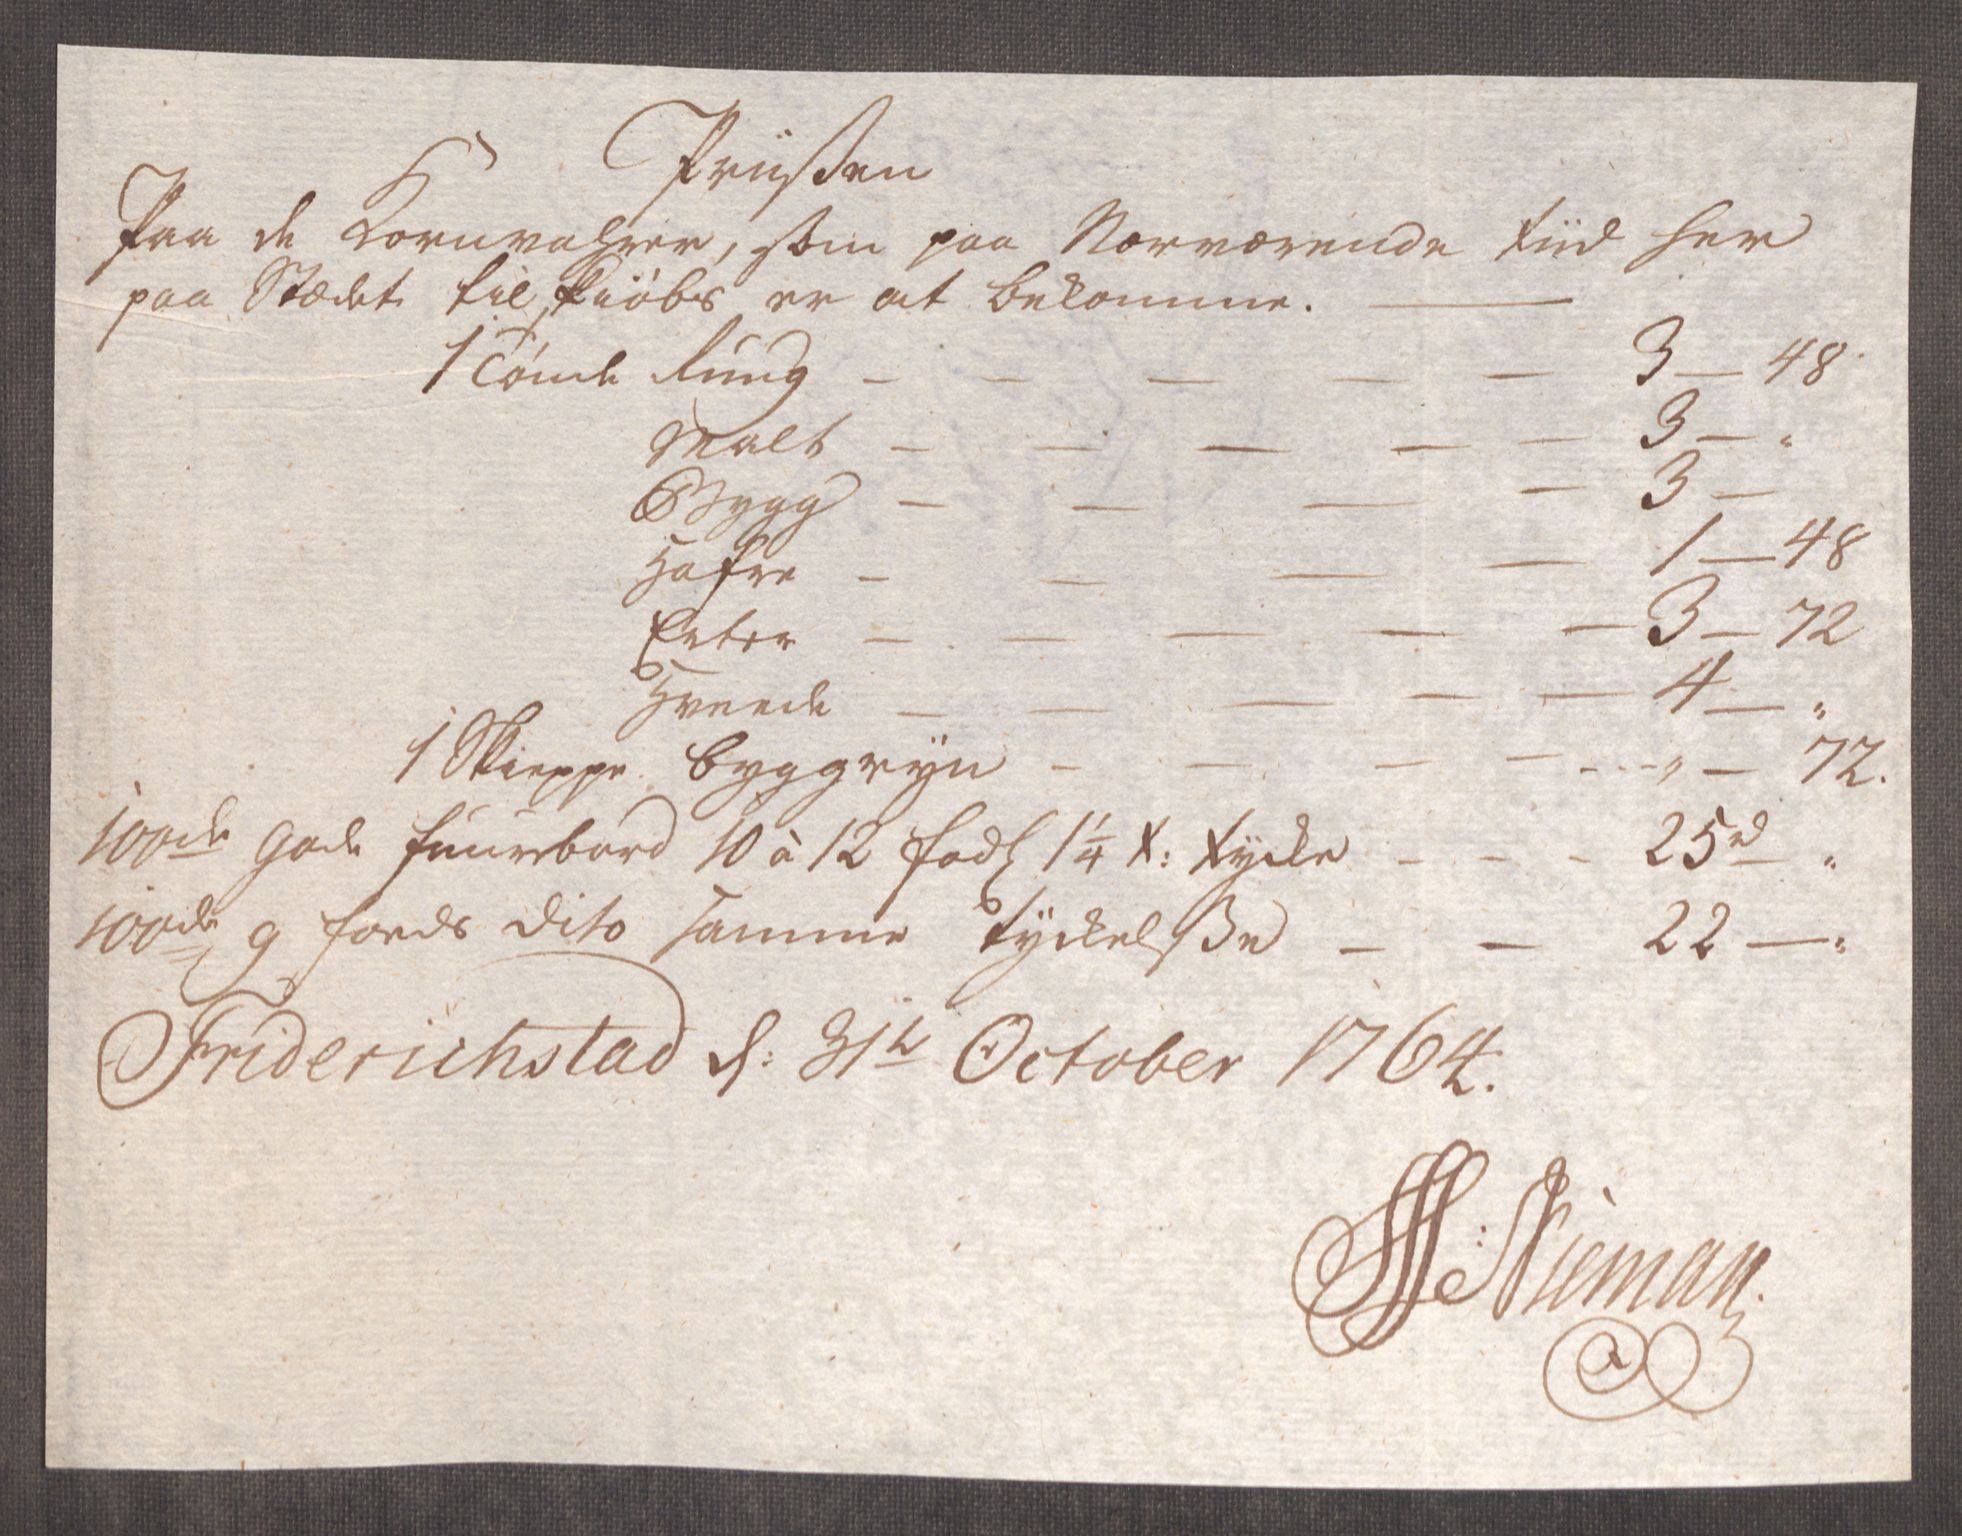 Priißen
Paa de Kornvahrer, som paa Nærværende tiid her
paa Stædet til Kiöbs er at bekomme.
1 Tönde Rug — — — — — 3 — 48
Malt — — — — — 3 — "
Bygg — — — — 3 —
Hafre — — — — 1 — 48
Erter — — — — — 3 — 72
Hveede — — — — — 4 — "
1 Skieppe byggryn — — — — " — 72.
100de gode fuurebord 10 à 12 fods 1¼ t: tycke - - - 25rd — "
100de 9 foeds dito samme tyckelße — — 22 — "
Friderichstad d: 31te October 1764.
Nieman